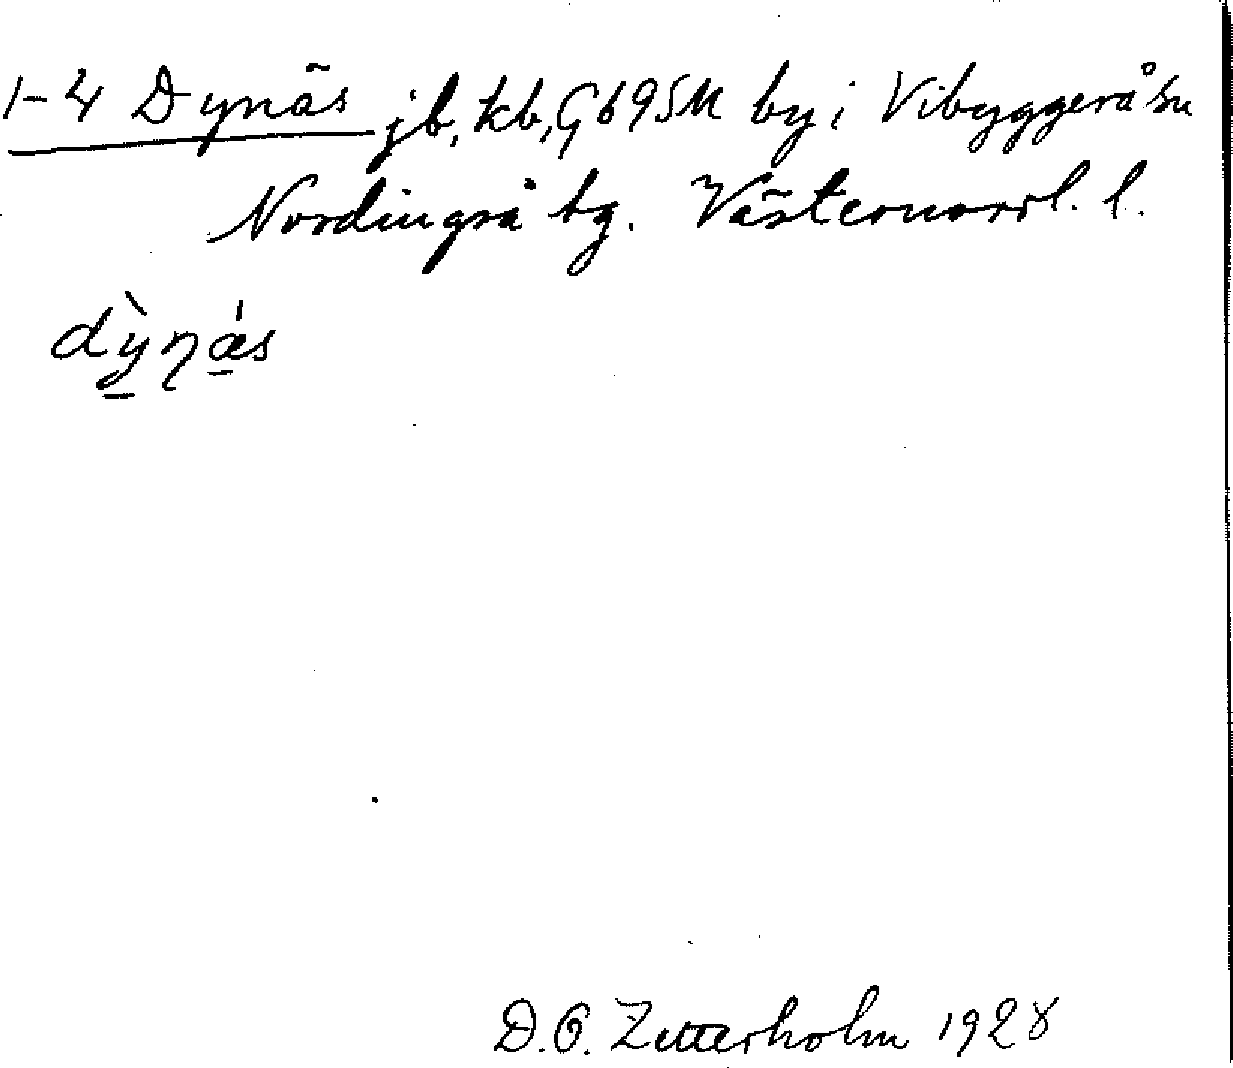 1-4 Dynäs jb, kb, G695M by i Vibyggerå sn
Nordingrå tg. Västernorrl. l.
dỳṉás
D.O. Zetterholm 1928